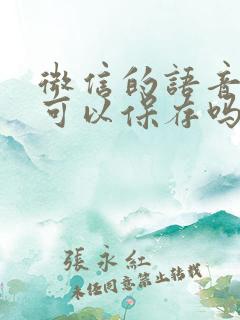 微信的語音
可以保存吗
張永紅
未经同意禁止转载